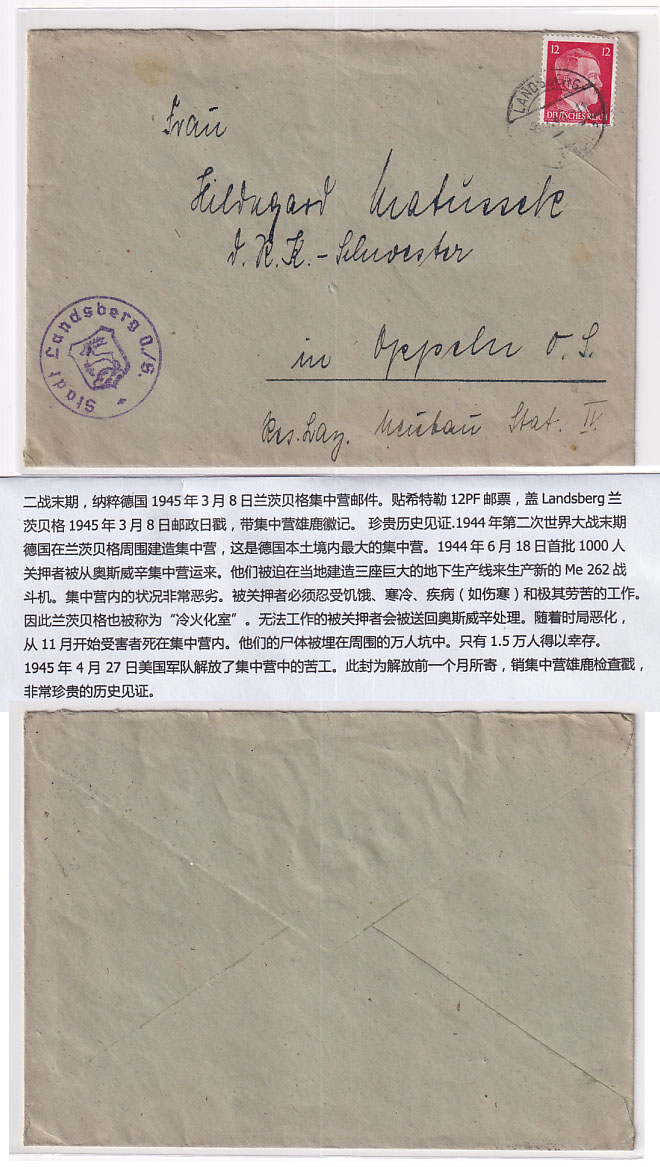 12 12
DEUTSCHES REICH
LANDSBERG
Frau
Hildegard Matussek
D.R.K.-Schwester
in Oppeln O.S.
Res. Laz. Neubau Stat. IV
Stadt Landsberg O./S.
二战末期，纳粹德国 1945 年 3 月 8 日兰茨贝格集中营邮件。贴希特勒 12PF 邮票，盖 Landsberg 兰
茨贝格 1945 年 3 月 8 日邮政日戳，带集中营雄鹿徽记。 珍贵历史见证.1944 年第二次世界大战末期
德国在兰茨贝格周围建造集中营，这是德国本土境内最大的集中营。1944 年 6 月 18 日首批 1000 人
关押者被从奥斯威辛集中营运来。他们被迫在当地建造三座巨大的地下生产线来生产新的 Me 262 战
斗机。集中营内的状况非常恶劣。被关押者必须忍受饥饿、寒冷、疾病（如伤寒）和极其劳苦的工作。
因此兰茨贝格也被称为“冷火化室”。无法工作的被关押者会被送回奥斯威辛处理。随着时局恶化，
从 11 月开始受害者死在集中营内。他们的尸体被埋在周围的万人坑中。只有 1.5 万人得以幸存。
1945 年 4 月 27 日美国军队解放了集中营中的苦工。此封为解放前一个月所寄，销集中营雄鹿检查戳，
非常珍贵的历史见证。